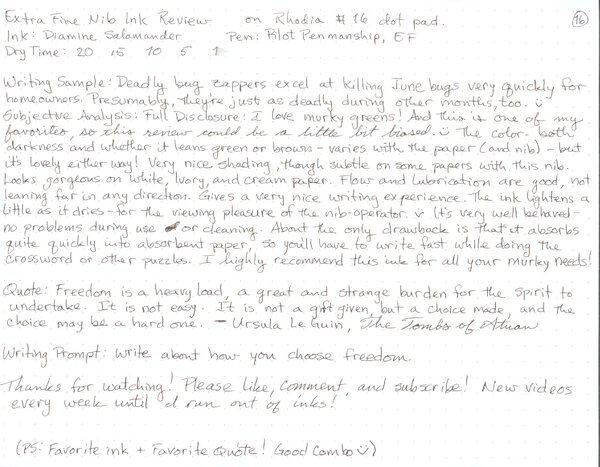 Extra Fine Nib Ink Review on Rhodia #16 dot pad. 16
Ink: Diamine Salamander Pen: Pilot Penmanship, EF
Dry Time: 20 15 10 5 1
Writing Sample: Deadly bug zappers excel at killing June bugs very quickly for
homeowners. Presumably, they're just as deadly during other months, too. :)
Subjective Analysis: Full Disclosure: I love murky greens! And this is one of my
favorites, so this review could be a little bit biased. :) The color- both
darkness and whether it leans green or brown - varies with the paper (and nib) - but
it's lovely either way! Very nice shading, though subtle on some papers with this nib.
Looks gorgeous on white, Ivory, and cream paper. Flow and lubrication are good, not
leaning far in any direction. Gives a very nice writing experience. The ink lightens a
little as it dries - for the viewing pleasure of the nib-operator. :) It's very well behaved -
no problems during use or cleaning. About the only drawback is that it absorbs
quite quickly into absorbent paper, so you'll have to write fast while doing the
crossword or other puzzles. I highly recommend this ink for all your murky needs!
Quote: Freedom is a heavy load, a great and strange burden for the spirit to
undertake. It is not easy. It is not a gift given, but a choice made, and the
choice may be a hard one. - Ursula Le Guin, The Tombs of Atuan
Writing Prompt: Write about how you choose freedom.
Thanks for watching! Please like, comment, and subscribe! New videos
every week until I run out of inks!
(PS: Favorite ink + Favorite Quote! Good Combo :))